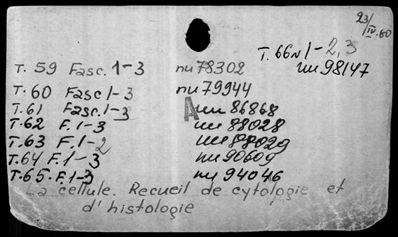 23/IV.60
T. 66 N 1-2, 3
T. 59 Fasc. 1-3 nu 78302 nu 98147
T. 60 Fasc 1-3 nu 79944
T. 61 Fasc. 1-3 A nu 86868
T-62 F. 1-3 nu 88028
T. 63 F. 1-2 nu 88029
T. 64 F. 1-3 nu 90609
T. 65. F. 1-3 nu 94046
La cellule. Recueil de cytologie et
d'histologie